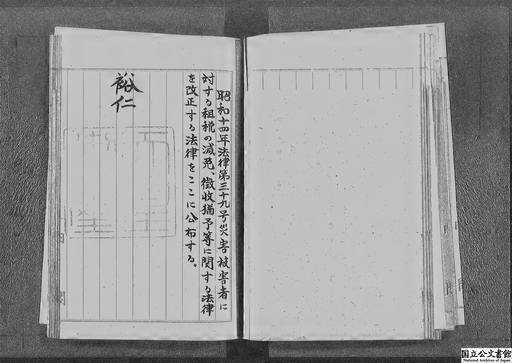 昭和十四年法律第三十九号災害被害者に
対する租税の減免、徴收猶予等に関する法律
を改正する法律をここに公布する。
裕仁
国立公文書館
National Archives of Japan